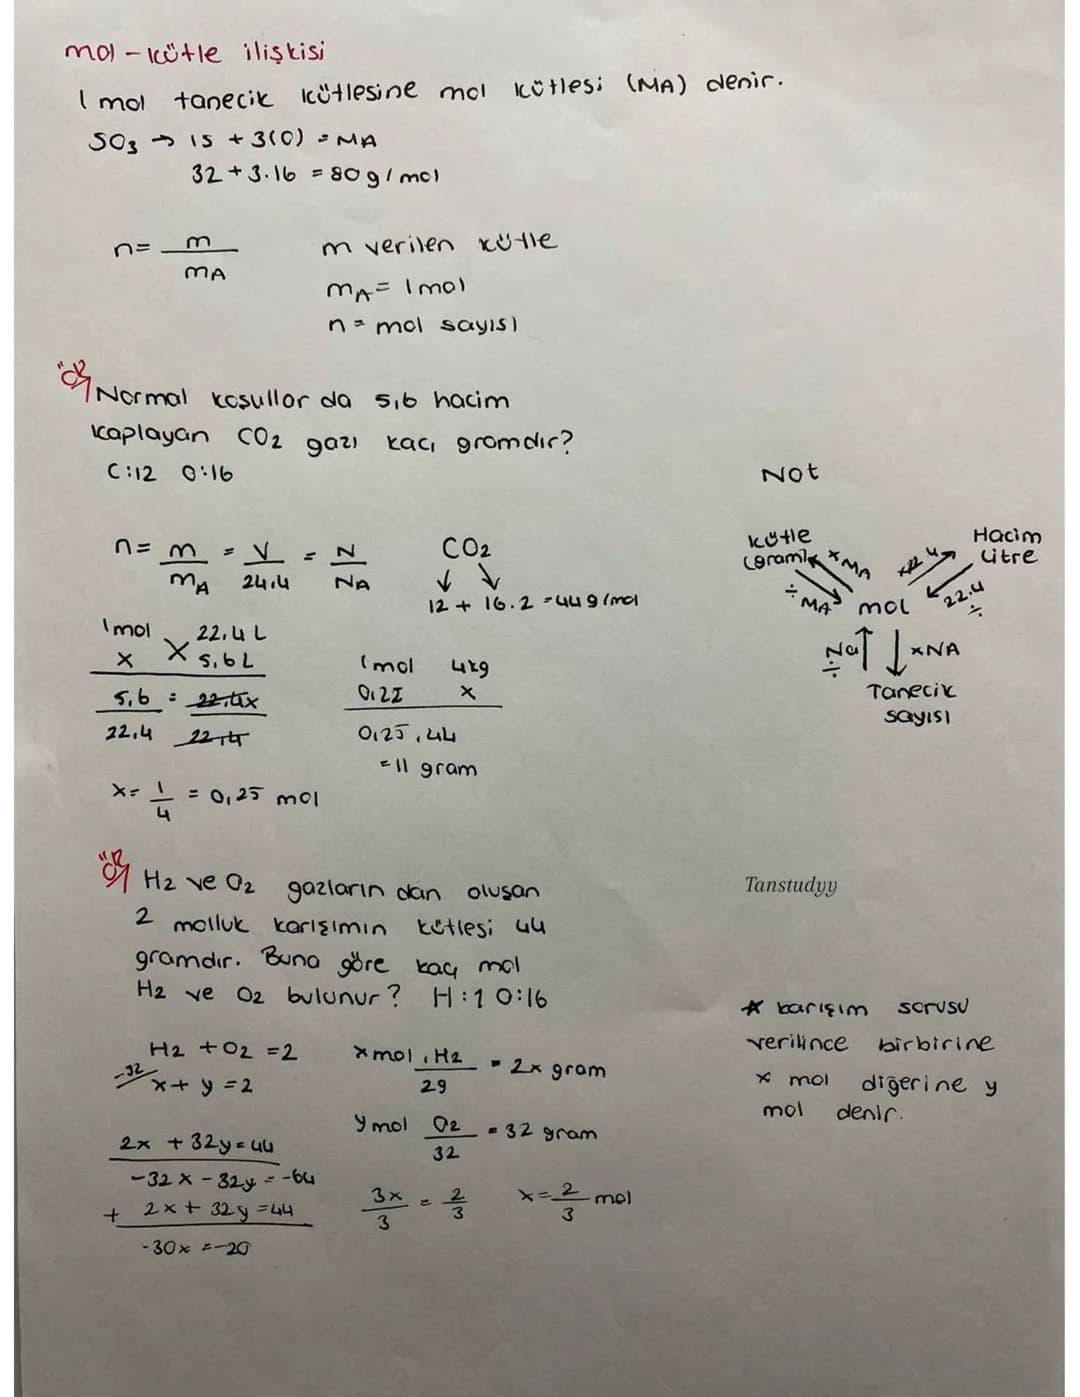 mol - kütle ilişkisi
1 mol tanecik kütlesine mol kütlesi (MA) denir.
SO3 → 1S + 3(O) = MA
32 + 3.16 = 80 g/mol
n = m / MA
m verilen kütle
mA = 1mol
n = mol sayısı
ÖR
Normal koşullor da 5,6 hacim
kaplayan CO2 gazı kaçı gromdır?
C:12 O:16
n = m / MA = V / 24,4 = N / NA
1mol 22,4 L
x X 5,6 L
5,6 = 22,4x
22,4 22,4
x = 1/4 = 0,25 mol
CO2
↓ ↘
12 + 16.2 = 44 g/mol
1mol 44g
0,25 x
0,25 . 44
= 11 gram
Not
Kütle
(gram)
x MA
÷ MA
mol
x22.4
22.4 ÷
Hacim
Litre
Na ÷
xNA
Tanecik
sayısı
ÖR
H2 ve O2 gazların dan oluşan
2 molluk karışımın kütlesi 44
gramdır. Buna göre kaç mol
H2 ve O2 bulunur? H:1 O:16
H2 + O2 = 2
-32/ x + y = 2
2x + 32y = 44
-32x - 32y = -64
+ 2x + 32y = 44
-30x = -20
x mol . H2 / 29 = 2x gram
y mol O2 / 32 = 32 gram
3x/3 = 2/3 x = 2/3 mol
Tanstudyy
* karışım sorusu
verilince birbirine
x mol diğerine y
mol denir.